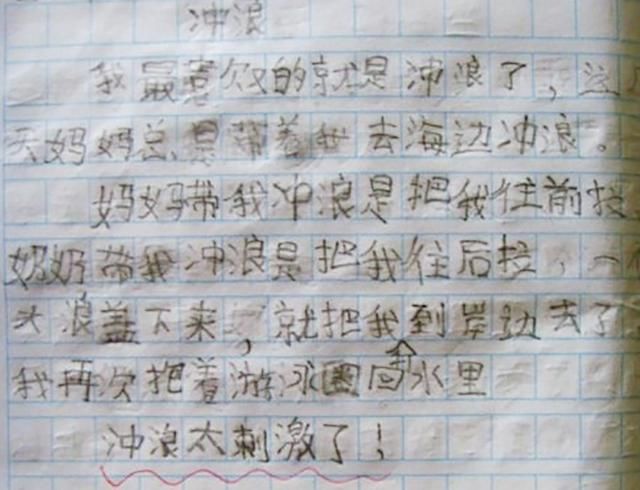 冲浪
我最喜欢的就是冲浪了，这
天妈妈总是带着我去海边冲浪。
妈妈带我冲浪是把我往前拉
奶奶带我冲浪是把我往后拉，一
头浪盖下来，就把我到岸边去了
我再次抱着游泳圈回会水里
冲浪太刺激了！